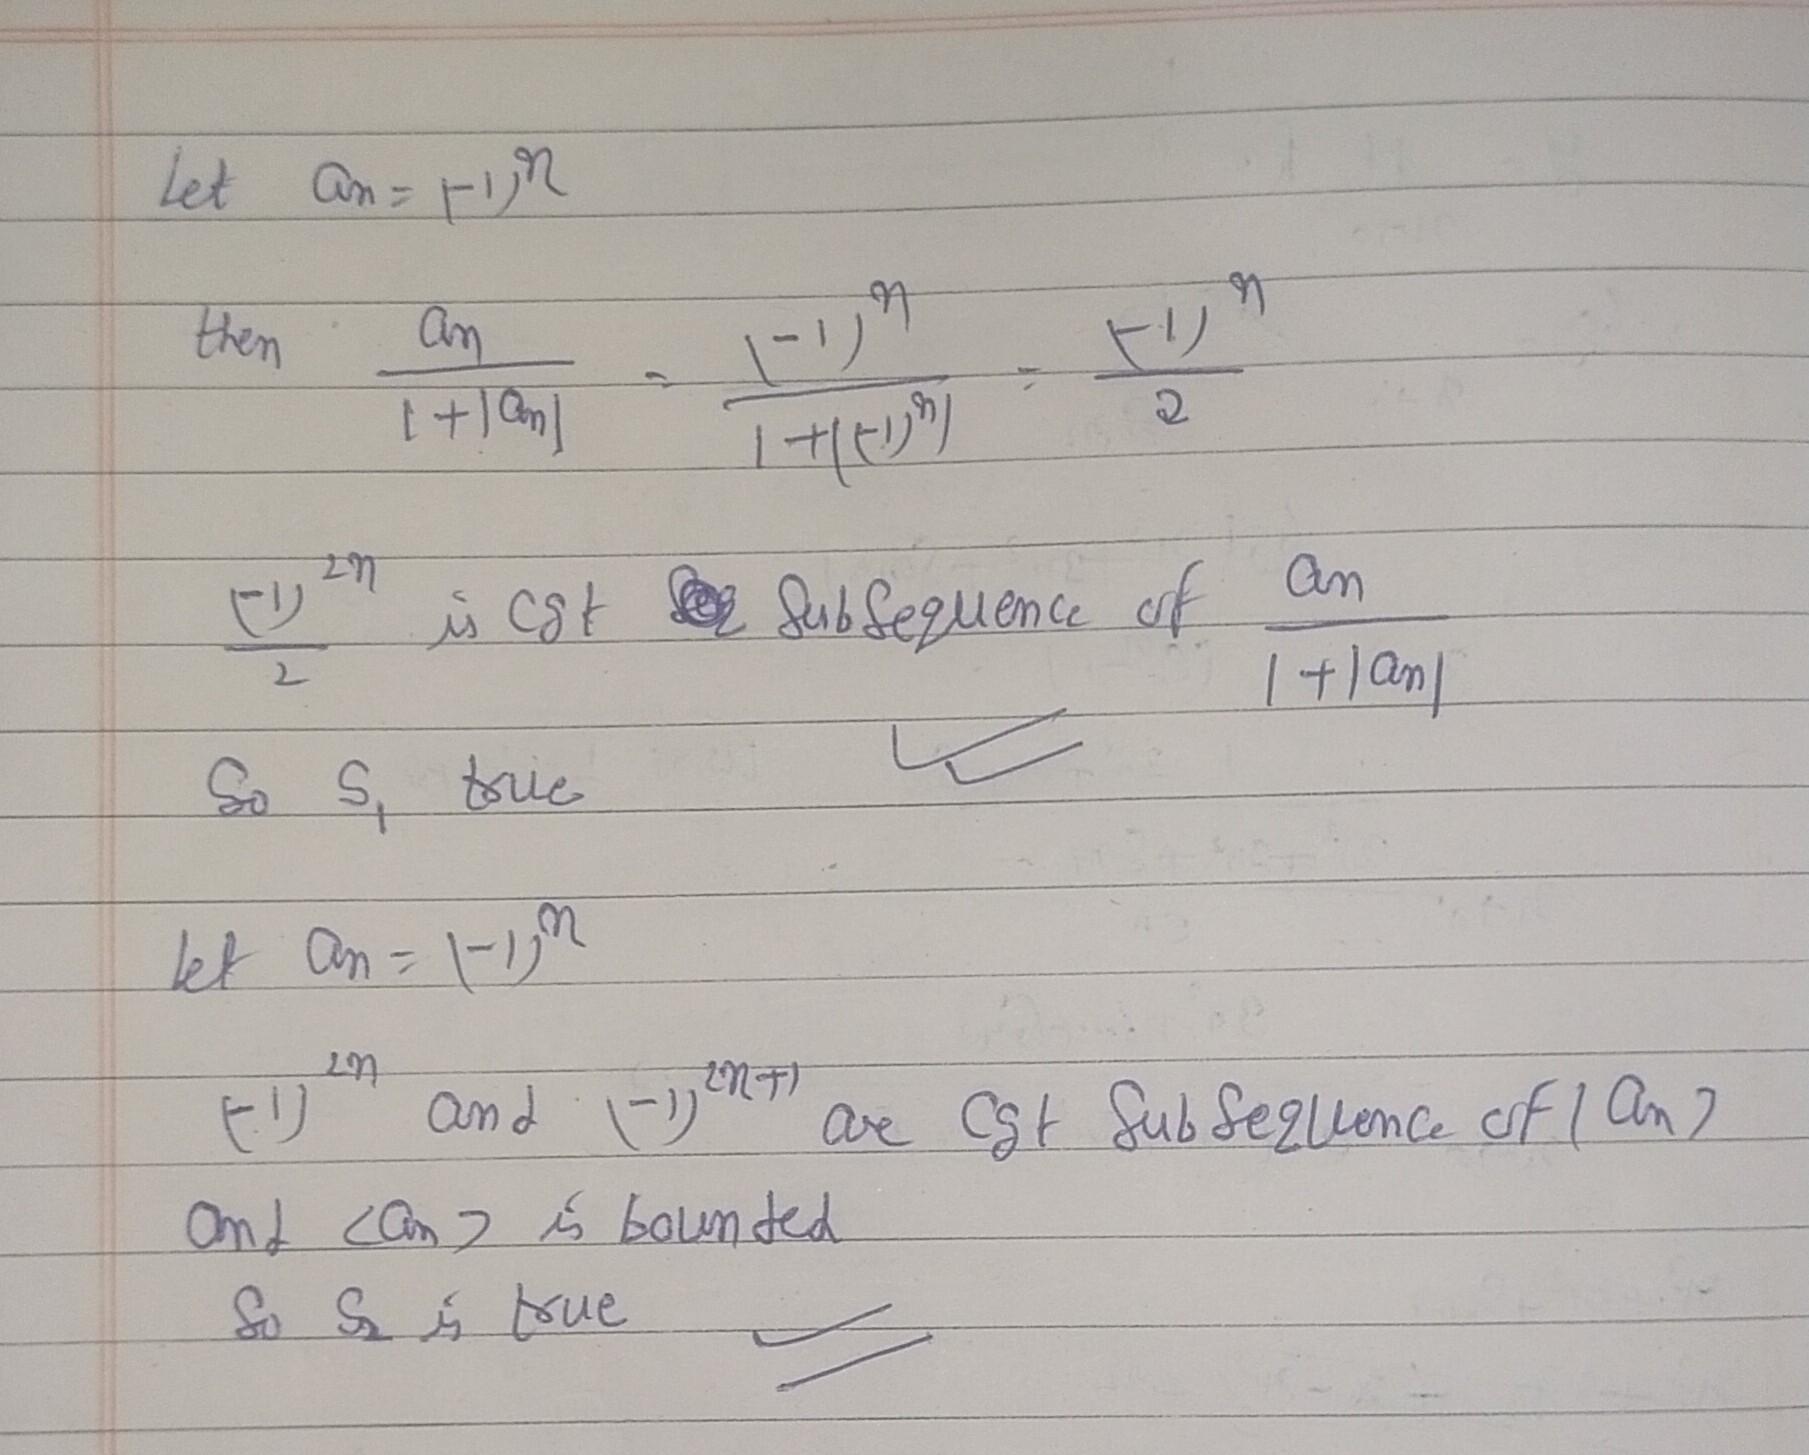 Let an = (-1)^n
then an / 1+|an| = (-1)^n / 1+|(-1)^n| = (-1)^n / 2
(-1)^2n / 2 is cgt Subsequence of an / 1+|an|
So S1 true
let an = (-1)^n
(-1)^2n and (-1)^2n+1 are cgt Subsequence of <an>
and <an> is bounded
So S2 is true